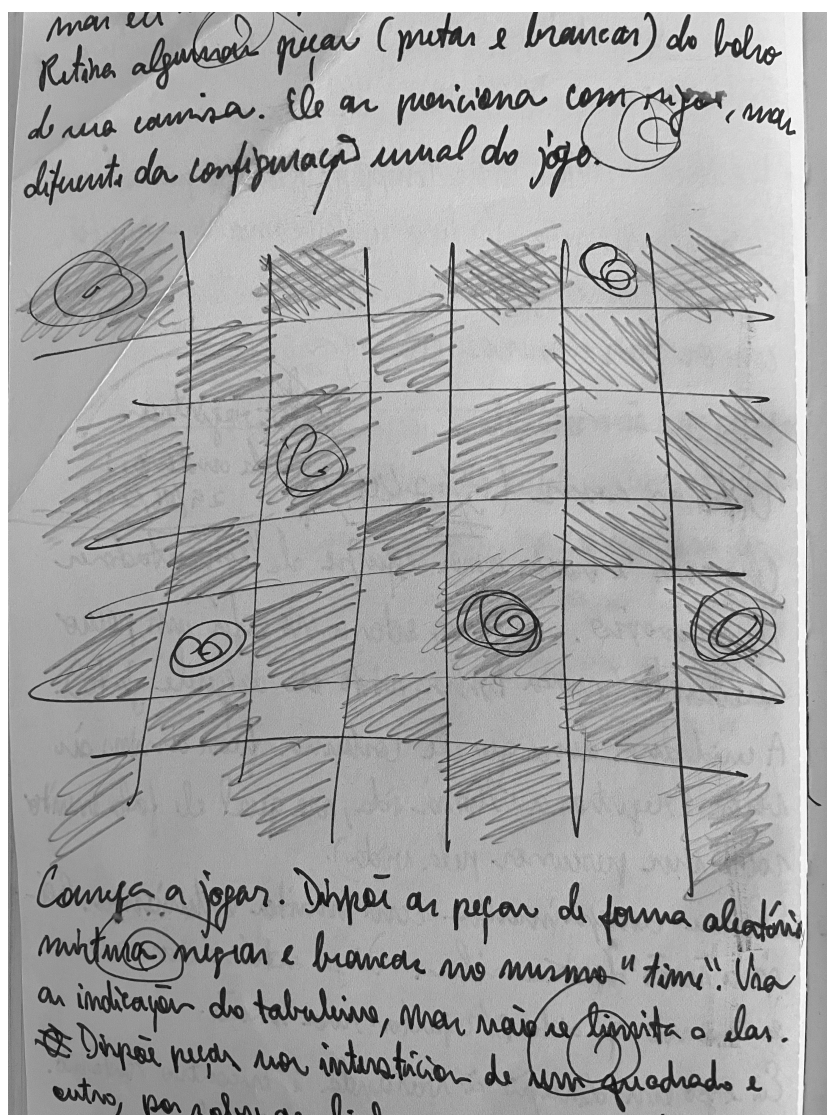 mas eu
Retira algumas peças (pretas e brancas) do bolso
de sua camisa. Ele as posiciona com rigor, mas
diferente da configuração usual do jogo.
Começa a jogar. Dispõe as peças de forma aleatória
mistura negras e brancas no mesmo "time". Usa
as indicações do tabuleiro, mas não se limita a elas.
Dispõe peças nos interstícios de um quadrado e
outro, por sobre as linhas